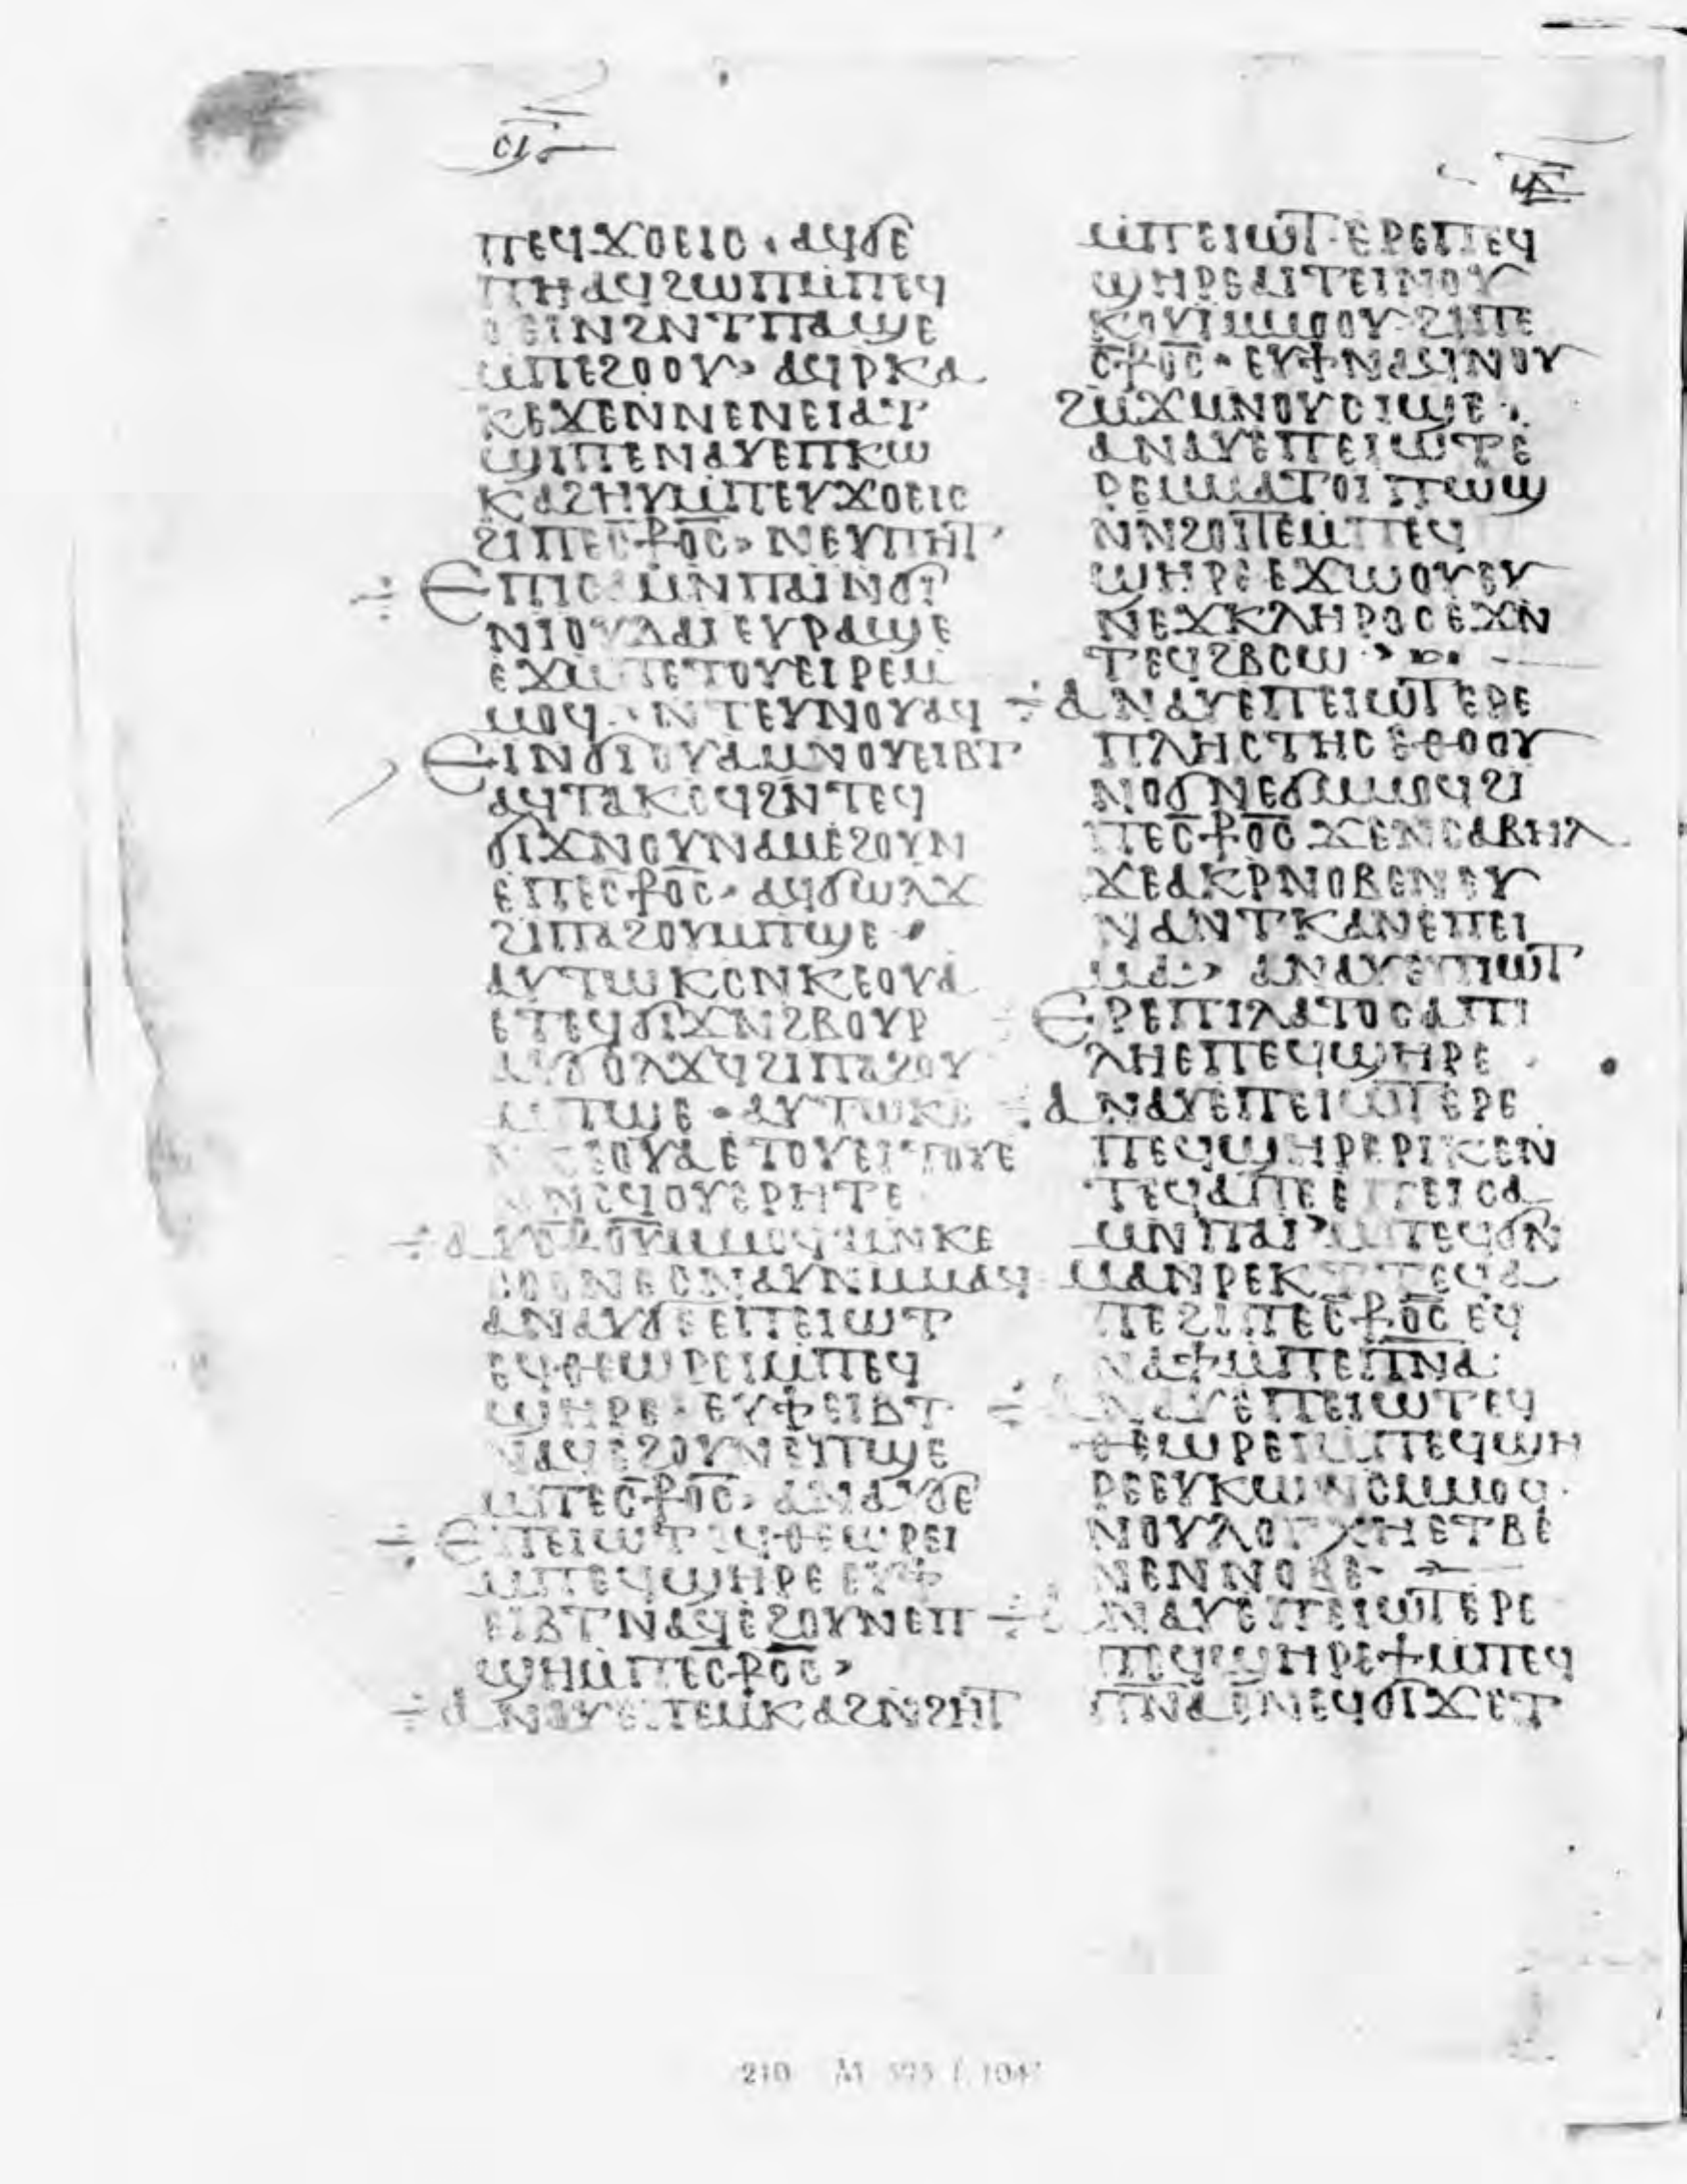 ⲥⲓ
ⲡⲉϥϫⲟⲉⲓⲥ · ⲁϥϭⲉ
ⲡⲏ ⲁϥϩⲱⲡ ⲙⲡⲉϥ
ⲟⲉⲓⲛ ϩⲛ ⲧⲡⲁϣⲉ
ⲙⲡⲉϩⲟⲟⲩ> ⲁϥⲣⲕⲁ
ⲕⲉ ϫⲉⲛⲛⲉⲛⲉⲓⲁⲧ
ϣⲓⲡⲉ ⲛⲁⲩ ⲉⲡⲕⲱ
ⲕⲁϩⲏⲩ ⲙⲡⲉⲩϫⲟⲉⲓⲥ
ϩⲓ ⲡⲉⲥ̅ⲣⲟ̅ⲥ̅> ⲛⲉⲩⲡⲏⲧ
ⲛⲓⲟⲩⲇⲁⲓ ⲉⲩⲣⲁϣⲉ
ⲉϫⲙ ⲡⲉⲧⲟⲩⲉⲓⲣⲉ ⲙ
ⲙⲟϥ · ⲛⲧⲉⲩⲛⲟⲩ ⲁϥ
ⲉⲓ ⲛϭⲓ ⲟⲩⲁ ⲙⲛ ⲟⲩⲉⲓⲃⲧ
ⲁϥⲧⲁⲕⲥϥ ϩⲛ ⲧⲉϥ
ϭⲓϫ ⲛⲟⲩⲛⲁⲙ ⲉϩⲟⲩⲛ
ⲉⲡⲉⲥ̅ⲣⲟ̅ⲥ̅> ⲁϥϭⲱⲗϫ
ϩⲓⲡⲁϩⲟⲩ ⲙⲡϣⲉ
ⲁⲩⲧⲱⲕⲥ ⲛⲕⲉⲟⲩⲁ
ⲉⲧⲉϥϭⲓϫ ⲛϩⲃⲟⲩⲣ
ⲁϥϭⲟⲗϫϥ ϩⲓⲡⲁϩⲟⲩ
ⲙⲡϣⲉ · ⲁⲩⲧⲱⲕⲥ
ⲛⲕⲉⲟⲩⲁ ⲉⲧⲟⲩⲉⲓⲧⲟⲩⲉ
ⲛⲛⲉϥⲟⲩⲉⲣⲏⲧⲉ
÷ ⲁⲩⲥ̅ⲣⲟ̅ⲩ̅ ⲙⲙⲟϥ ⲙⲛ ⲕⲉ
ⲥⲟⲟⲛⲉ ⲥⲛⲁⲩ ⲛⲙⲙⲁϥ
ⲁⲛⲁⲩ ϭⲉ ⲉⲡⲉⲓⲱⲧ
ⲉϥⲑⲉⲱⲣⲉⲓ ⲙⲡⲉϥ
ϣⲏⲣⲉ · ⲉⲩϯⲉⲓⲃⲧ
ⲛⲁϥ ⲉϩⲟⲩⲛ ⲉⲡϣⲉ
ⲙⲡⲉⲥ̅ⲣⲟ̅ⲥ̅> ⲁⲛⲁⲩ ϭⲉ
÷ ⲉⲡⲉⲓⲱⲧ ⲉϥⲑⲉⲱⲣⲉⲓ
ⲙⲡⲉϥϣⲏⲣⲉ ⲉⲩϯ
ⲉⲓⲃⲧ ⲛⲁϥ ⲉϩⲟⲩⲛ ⲉⲡ
ϣⲏ ⲙⲡⲉⲥ̅ⲣⲟ̅ⲥ̅>
÷ ⲁⲛⲁⲩ ⲉⲡⲉⲙⲕⲁϩ ⲛϩⲏⲧ
ⲙⲡⲉⲓⲱⲧ · ⲉⲣⲉ ⲡⲉϥ
ϣⲏⲣⲉ ⲁⲓⲧⲉⲓ ⲛⲟⲩ
ⲕⲟⲩⲓ ⲙⲙⲟⲟⲩ ϩⲓ ⲡⲉ
ⲥ̅ⲣⲟ̅ⲥ̅ · ⲉⲩϯ ⲛⲁϥ ⲛⲟⲩ
ϩⲙϫ ⲙⲛ ⲟⲩⲥⲓϣⲉ ·
ⲁⲛⲁⲩ ⲉⲡⲉⲓⲱⲧ ⲉ
ⲣⲉ ⲙⲙⲁⲧⲟⲓ ⲡⲱϣ
ⲛⲛϩⲟⲓⲧⲉ ⲙⲡⲉϥ
ϣⲏⲣⲉ ⲉϫⲱⲟⲩ ⲉⲩ
ⲛⲉϫ ⲕⲗⲏⲣⲟⲥ ⲉϫⲛ
ⲧⲉϥϩⲃⲥⲱ · >
÷ ⲁⲛⲁⲩ ⲉⲡⲉⲓⲱⲧ ⲉⲣⲉ
ⲡⲗⲏⲥⲧⲏⲥ ⲉⲑⲟⲟⲩ
ⲛⲟϭⲛⲉϭ ⲙⲙⲟϥ ϩⲓ
ⲡⲉⲥ̅ⲣⲟ̅ⲥ̅ ϫⲉⲛⲥⲁⲃⲏⲗ
ϫⲉⲁⲕⲣⲛⲟⲃⲉ ⲛⲉⲩ
ⲛⲁⲛⲧⲕ ⲁⲛ ⲉⲡⲉⲓ
ⲙⲁ> ⲁⲛⲁⲩ ⲉⲡⲓⲱⲧ
ⲉⲣⲉ ⲡⲓⲗⲁⲧⲟⲥ ⲁⲡⲓ
ⲗⲏ ⲉⲡⲉϥϣⲏⲣⲉ ·
÷ ⲁⲛⲁⲩ ⲉⲡⲉⲓⲱⲧ ⲉⲣⲉ
ⲡⲉϥϣⲏⲣⲉ ⲣⲓⲕⲉ ⲛ
ⲧⲉϥⲁⲡⲉ ⲉⲡⲉⲓⲥⲁ
ⲙⲛ ⲡⲁⲓ> ⲙⲡⲉϥϭⲛ
ⲙⲁ ⲛⲣⲉⲕⲧ ⲧⲉϥⲁ
ⲡⲉ ϩⲓ ⲡⲉⲥ̅ⲣⲟ̅ⲥ̅ ⲉϥ
ⲛⲁϯ ⲙⲡⲉⲡ̅ⲛ̅ⲁ̅
÷ ⲁⲛⲁⲩ ⲉⲡⲉⲓⲱⲧ ⲉϥ
ⲑⲉⲱⲣⲉⲓ ⲙⲡⲉϥϣⲏ
ⲣⲉ ⲉⲩⲕⲱⲛⲥ ⲙⲙⲟϥ
ⲛⲟⲩⲗⲟⲅⲭⲏ ⲉⲧⲃⲉ
ⲛⲉⲛⲛⲟⲃⲉ·
÷ ⲁⲛⲁⲩ ⲉⲡⲉⲓⲱⲧ ⲉⲣⲉ
ⲡⲉϥϣⲏⲣⲉ ϯ ⲙⲡⲉϥ
ⲡ̅ⲛ̅ⲁ̅ ⲉⲛⲉϥϭⲓϫ ⲉⲧ
210 M 595 f. 104